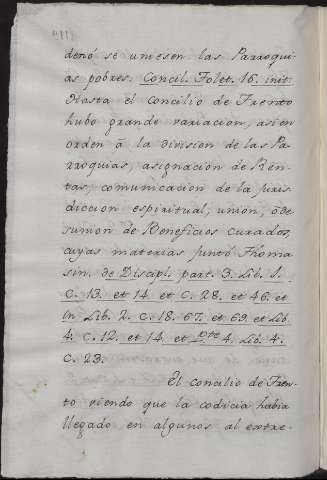 denó se uniesen las Parroqui-
as pobres. Concil. Tolet. 16. init.
Hasta el Concilio de Trento
hubo grande variacion, asi en
orden à la division de las Pa-
rroquias, asignacion de Ren-
tas, comunicacion de la juris
diccion espiritual, union, ò de
sunion de Beneficios curados,
cuyas materias juntó Thoma
sin. de Discipl. part. 3. Lib. 1.
C. 13. et 14. et C. 28. et 46. et
in Lib. 2. C. 18. 67. et 69. et Lib.
4. C. 12. et 14. et Pte. 4. Lib. 4.
C. 23.
El concilio de Tren-
to viendo que la codicia habia
llegado en algunos al extre-